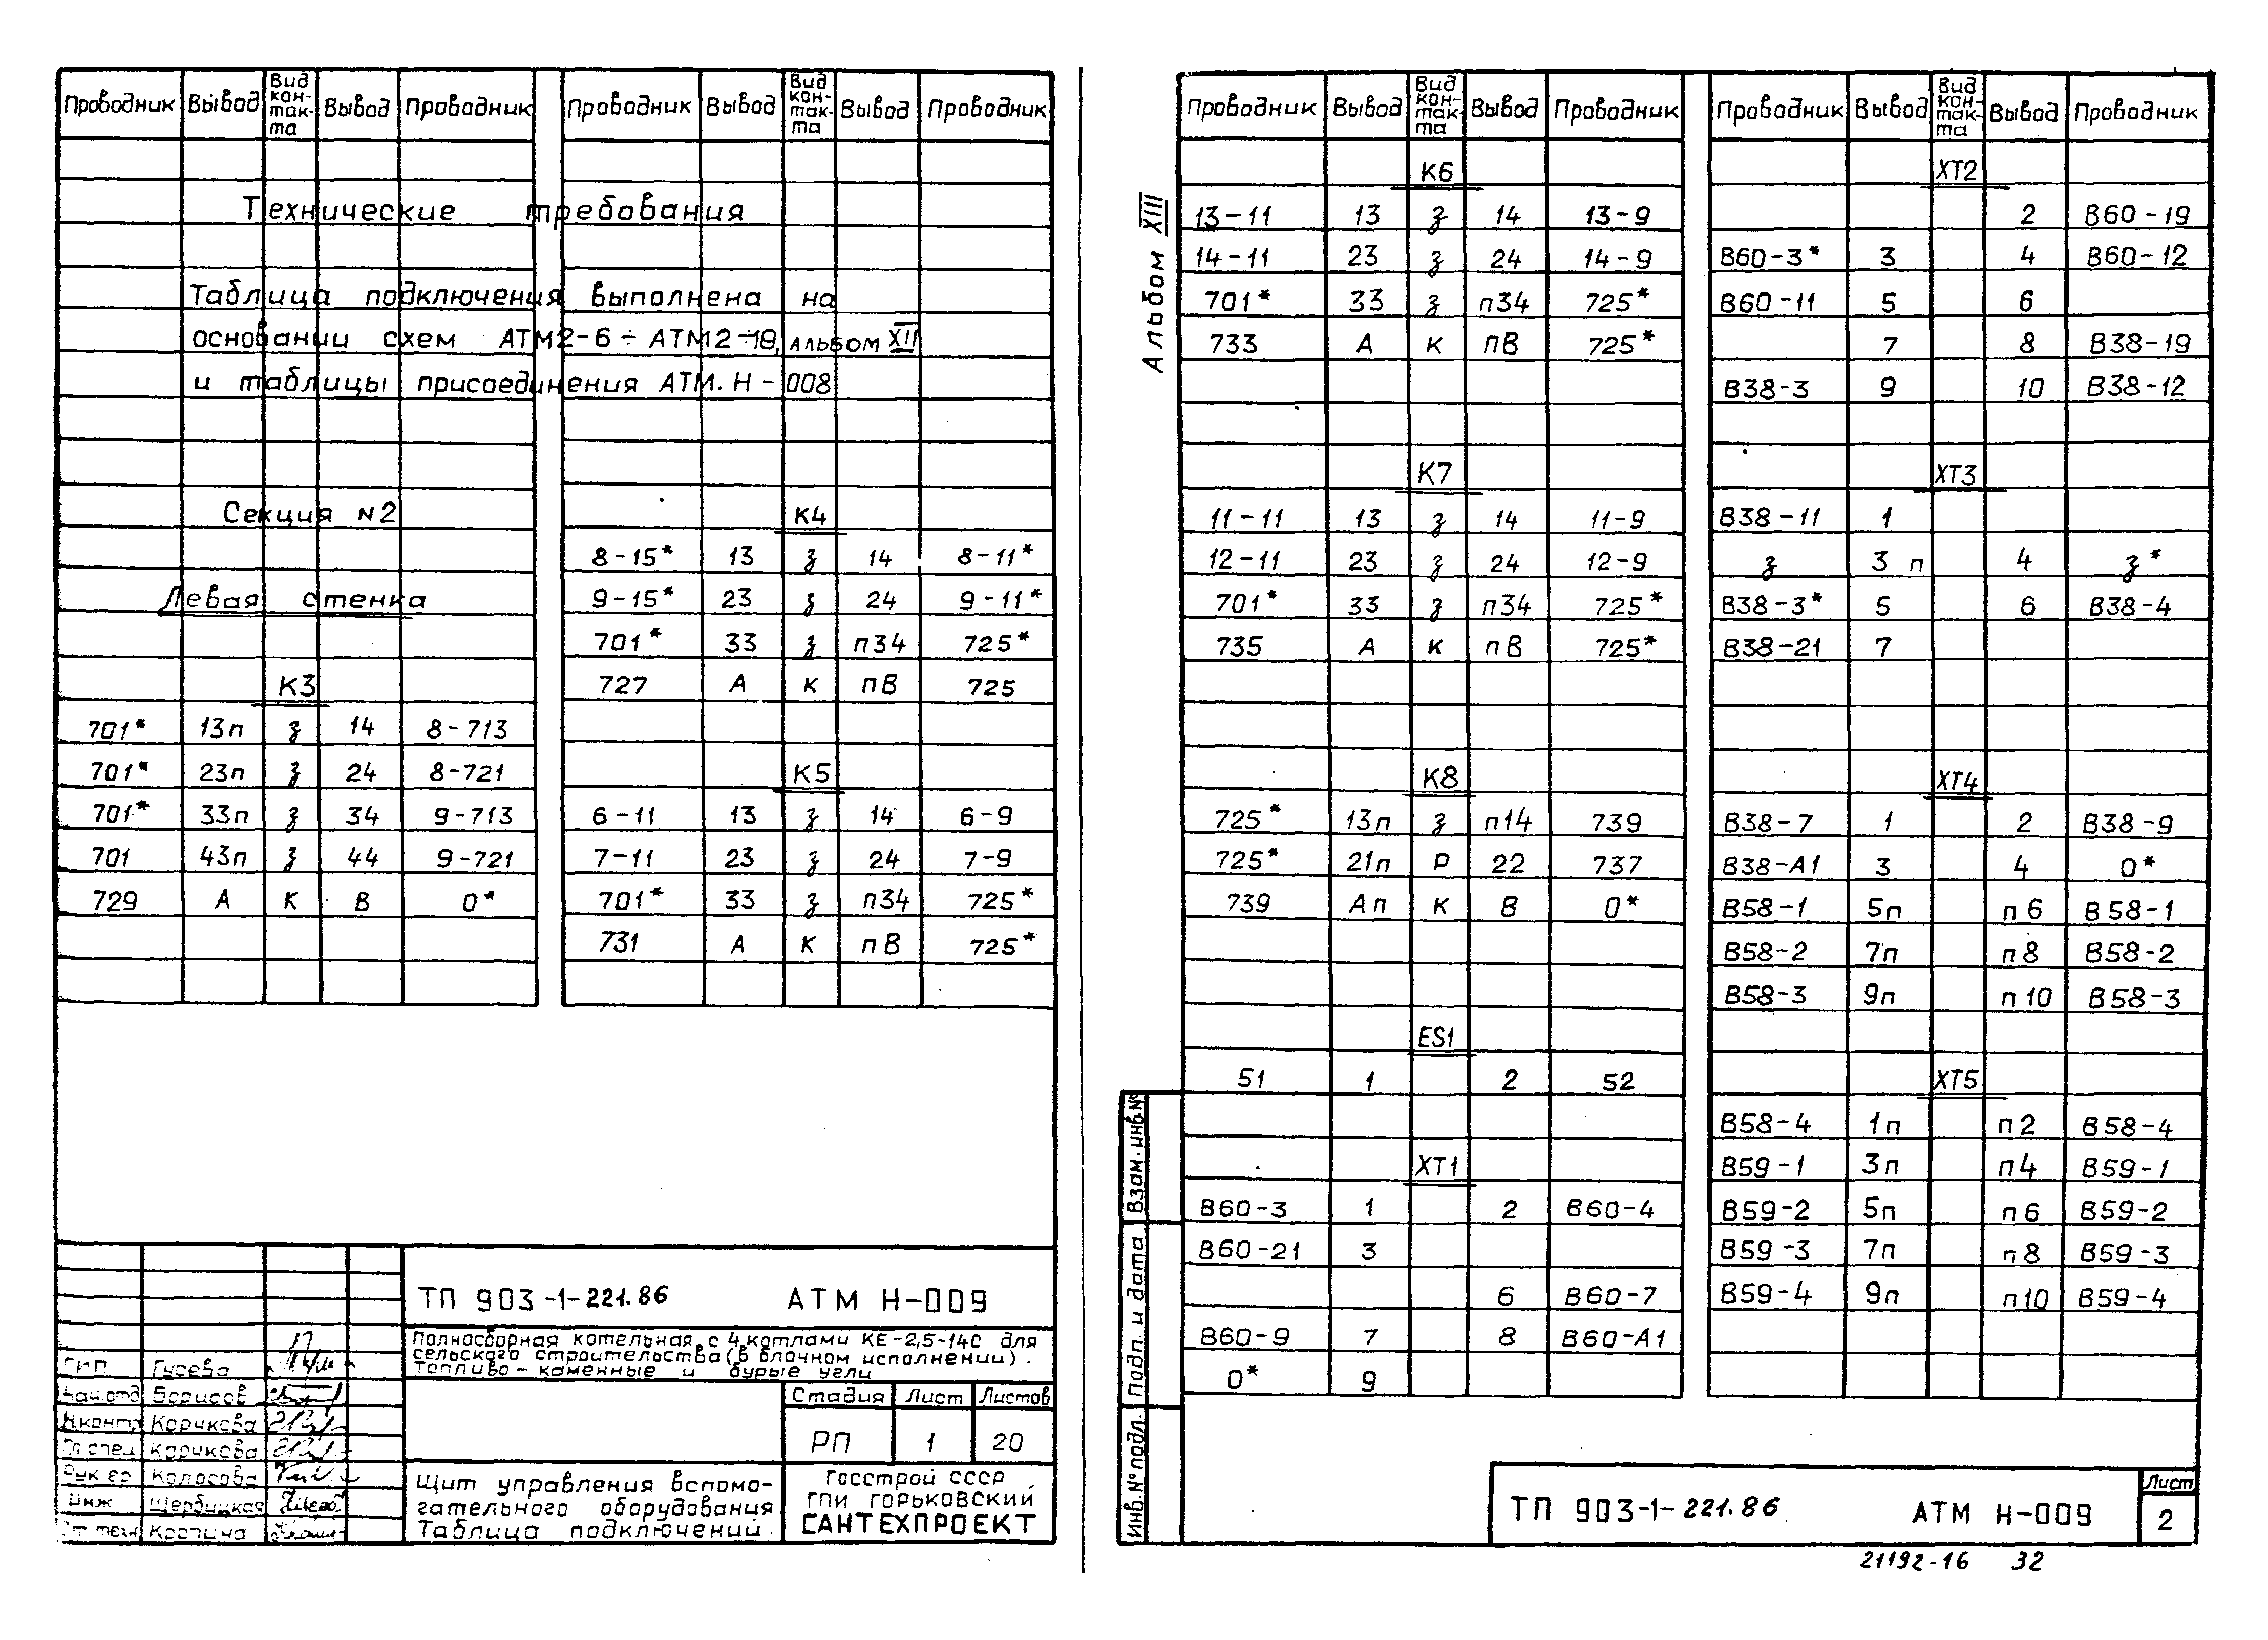 Проводник Вывод Вид кон-так-та Вывод Проводник
Технические требования
Таблица подключения выполнена на
основании схем АТМ2-6÷АТМ2-19, альбом XII
и таблицы присоединения АТМ.Н-008
Секция N2
Левая стенка
К3
701* 13п з 14 8-713
701* 23п з 24 8-721
701* 33п з 34 9-713
701 43п з 44 9-721
729 А К В 0*
Проводник Вывод Вид кон-так-та Вывод Проводник
К4
8-15* 13 з 14 8-11*
9-15* 23 з 24 9-11*
701* 33 з п34 725*
727 А К пВ 725
К5
6-11 13 з 14 6-9
7-11 23 з 24 7-9
701* 33 з п34 725*
731 А К пВ 725*
ТП 903-1-221.86 АТМ Н-009
Полносборная котельная с 4 котлами КЕ-2,5-14С для
сельского строительства (в блочном исполнении).
Топливо - каменные и бурые угли
ГИП Гусева
Нач.отд Борисов
Н.контр Корчкова
Гл.спец Корчкова
Рук гр Колосова
Инж Щербицкая
Ст.техн
Стадия Лист Листов
РП 1 20
Щит управления вспомо-
гательного оборудования.
Таблица подключений.
Госстрой СССР
ГПИ ГОРЬКОВСКИЙ
САНТЕХПРОЕКТ
Альбом XIII
Проводник Вывод Вид кон-так-та Вывод Проводник
К6
13-11 13 з 14 13-9
14-11 23 з 24 14-9
701* 33 з п34 725*
733 А К пВ 725*
К7
11-11 13 з 14 11-9
12-11 23 з 24 12-9
701* 33 з п34 725*
735 А К пВ 725*
К8
725* 13п з п14 739
725* 21п Р 22 737
739 Ап К В 0*
ES1
51 1 2 52
XT1
В60-3 1 2 В60-4
В60-21 3
6 В60-7
В60-9 7 8 В60-А1
0* 9
Проводник Вывод Вид кон-так-та Вывод Проводник
XT2
2 В60-19
В60-3* 3 4 В60-12
В60-11 5 6
7 8 В38-19
В38-3 9 10 В38-12
XT3
В38-11 1
з 3п 4 з*
В38-3* 5 6 В38-4
В38-21 7
XT4
В38-7 1 2 В38-9
В38-А1 3 4 0*
В58-1 5п п6 В58-1
В58-2 7п п8 В58-2
В58-3 9п п10 В58-3
XT5
В58-4 1п п2 В58-4
В59-1 3п п4 В59-1
В59-2 5п п6 В59-2
В59-3 7п п8 В59-3
В59-4 9п п10 В59-4
Взам.инв.№
Подп. и дата
Инв.№подл.
ТП 903-1-221.86 АТМ Н-009
Лист
2
21192-16 32